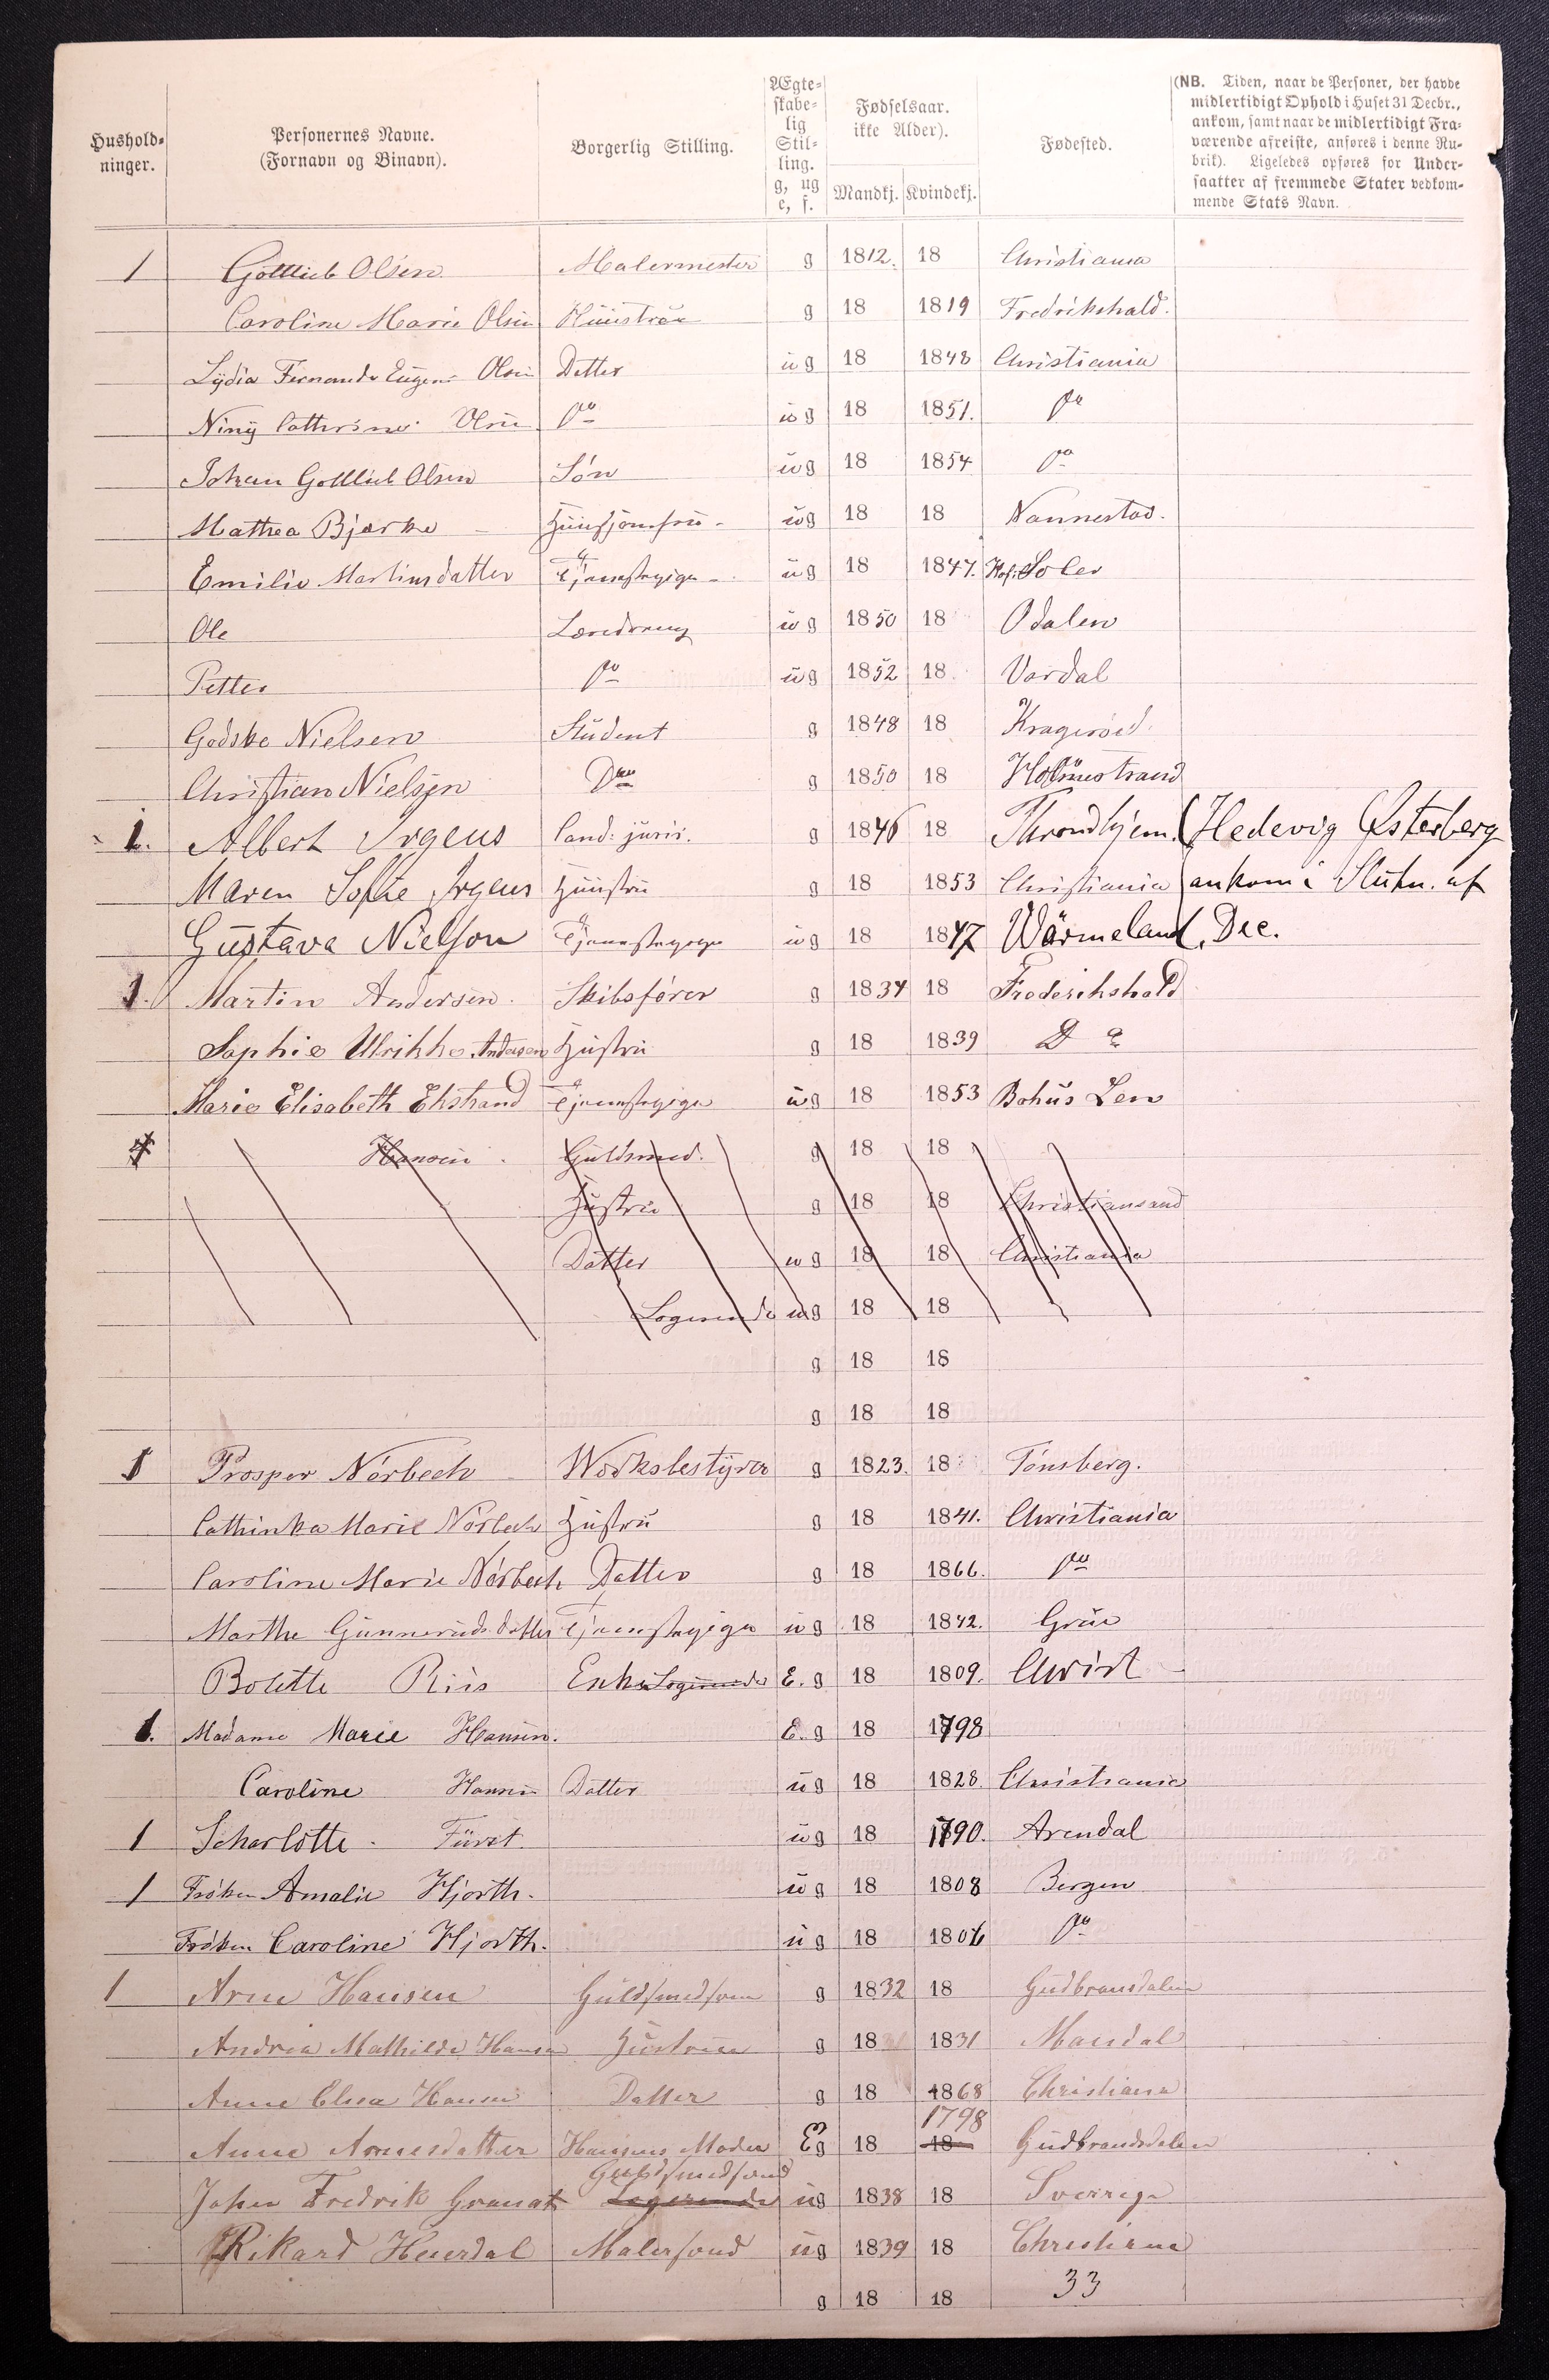 Hushold-ninger. Personernes Navne. (Fornavn og Binavn). Borgerlig Stilling. Ægte-skabe-lig Stil-ling. g, ug e, f. Fødselsaar. ikke Alder). Mandkj. Kvindekj. Fødested.
(NB. Tiden, naar de Personer, der havde
midlertidigt Ophold i Huset 31 Decbr.,
ankom, samt naar de midlertidigt Fra-
værende afreiste, anføres i denne Ru-
brik). Ligeledes opføres for Under-
saatter af fremmede Stater vedkom-
mende Stats Navn.
1 Gottlieb Olsen Malermester g 1812. 18 Christiania
Caroline Marie Olsen Huustrue g 18 1819 Fredrikshald.
Lydia Fernanda Eugeni Olsen Datter ug 18 1848 Christiania
Niny Cathrine Olsen Do ug 18 1851. Do
Johan Gottlieb Olsen Søn ug 18 1854 Do
Mathea Bjerke Huusjomfru ug 18 18 Nannestad.
Emilie Martinsdatter Tjenestepige ug 18 1847. Hof: Soler
Ole Læredreng ug 1850 18 Odalen
Petter Do ug 1852 18 Vardal
Godske Nielsen Student g 1848 18 Kragerøed
Christian Nielsen Do g 1850 18 Holmestrand
1. Albert Irgens Cand: juris. g 1846 18 Throndhjem. (Hedevig Østerberg
Maren Sofie Irgens Huustru g 18 1853 Christiania ankom i Slutn. af
Gustava Nielson Tjenestepige ug 18 1847 Wärmeland. Dec.
1. Martin Andersen. Skibsfører g 1834 18 Frederikshald
Sophie Ulrikke Andersen Hustru g 18 1839 Do
Marie Elisabeth Ekstrand Tjenestepige ug 18 1853 Bohus Len
Hansen. Guldsmed. g 18 18
Hustru g 18 18 Christiansand
Datter ug 18 18 Christiania
Logerende ug 18 18
g 18 18
g 18 18
1 Prosper Nørbech Værksbestyrer g 1823. 18 Tønsberg.
Cathinka Marie Nørbech Hustru g 18 1841. Christiania
Caroline Marie Nørbech Datter g 18 1866. Do
Marthe Gunnerudsdatter Tjenestepige ug 18 1842. Grue
Bolette Riis Enke Logerende E. g 18 1809. Christ
1. Madame Marie Hansen. E. g 18 1798
Caroline Hansen Datter ug 18 1828. Christiania
1 Scharlotte Fürst ug 18 1790. Arendal
1 Frøken Amalie Hjorth. ug 18 1808 Bergen
Frøken Caroline Hjorth. ug 18 1806 Do
1 Arne Hansen Guldsmedsvend g 1832 18 Gudbransdalen
Andrea Mathilde Hansen Hustrue g 18 1831 Mandal
Anne Elisa Hansen Datter g 18 1868 Christiania
Anne Arnesdatter Hansens Moder Eg 18 18 1798 Gudbrandsdalen
Johan Fredrik Granat Logerende Guldsmedsvend ug 1838 18 Sverrige
Rikard Heierdal Malersvend ug 1839 18 Christiania
g 18 18 33